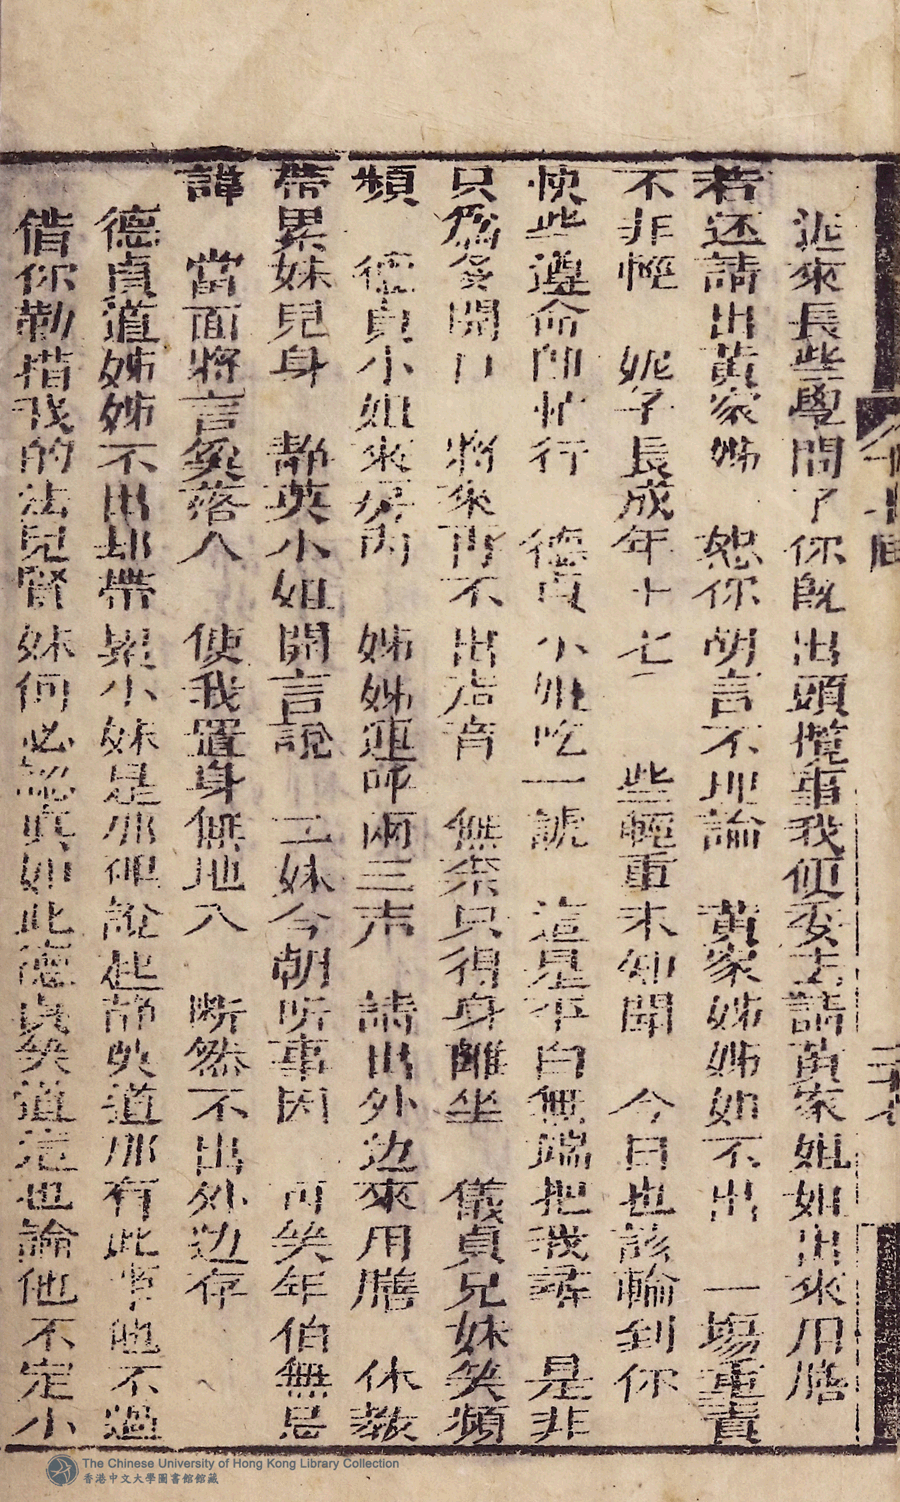 近來長些學問了你既出頭攬事我便要去請黃家姐如出來用膳
若還請出黃家姊　恕你胡言不理論　黃家姊姊如不出　一場重責
不非輕　妮子長成年十七　些輕重未知聞　今日也該輪到你
快些遵命即忙行　德貞小姐吃一諕　這是平白無端把我尋　是非
只為多開口　將來再不出店音　無奈只得身離坐　儀貞兄妹笑頻
頻　德貞小姐來房內　姊姊連呼兩三声　請出外边來用膳　休教
帶累妹兒身　靜英小姐開言說　二妹今朝所事因　可笑年伯無忌
諱　當面將言奚落人　使我置身無地入　断然不出外边存
德貞道姊姊不出却帶累小妹是那裡說起静英道那有此事他不過
借你勒掯我的法兒賢妹何必認真如此德貞笑道這也論他不定小
二十七
The Chinese University of Hong Kong Library Collection
香港中文大學圖書館館藏